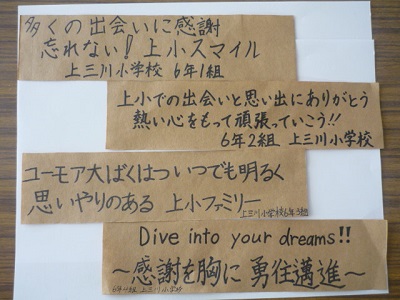 多くの出会いに感謝
忘れない!上小スマイル
上三川小学校 6年1組
上小での出会いと思い出にありがとう
熱い心をもって頑張っていこう!!
6年2組 上三川小学校
ユーモア大ばくはつ いつでも明るく
思いやりのある 上小ファミリー
上三川小学校6年3組
Dive into your dreams!!
〜感謝を胸に 勇往邁進〜
6年4組 上三川小学校